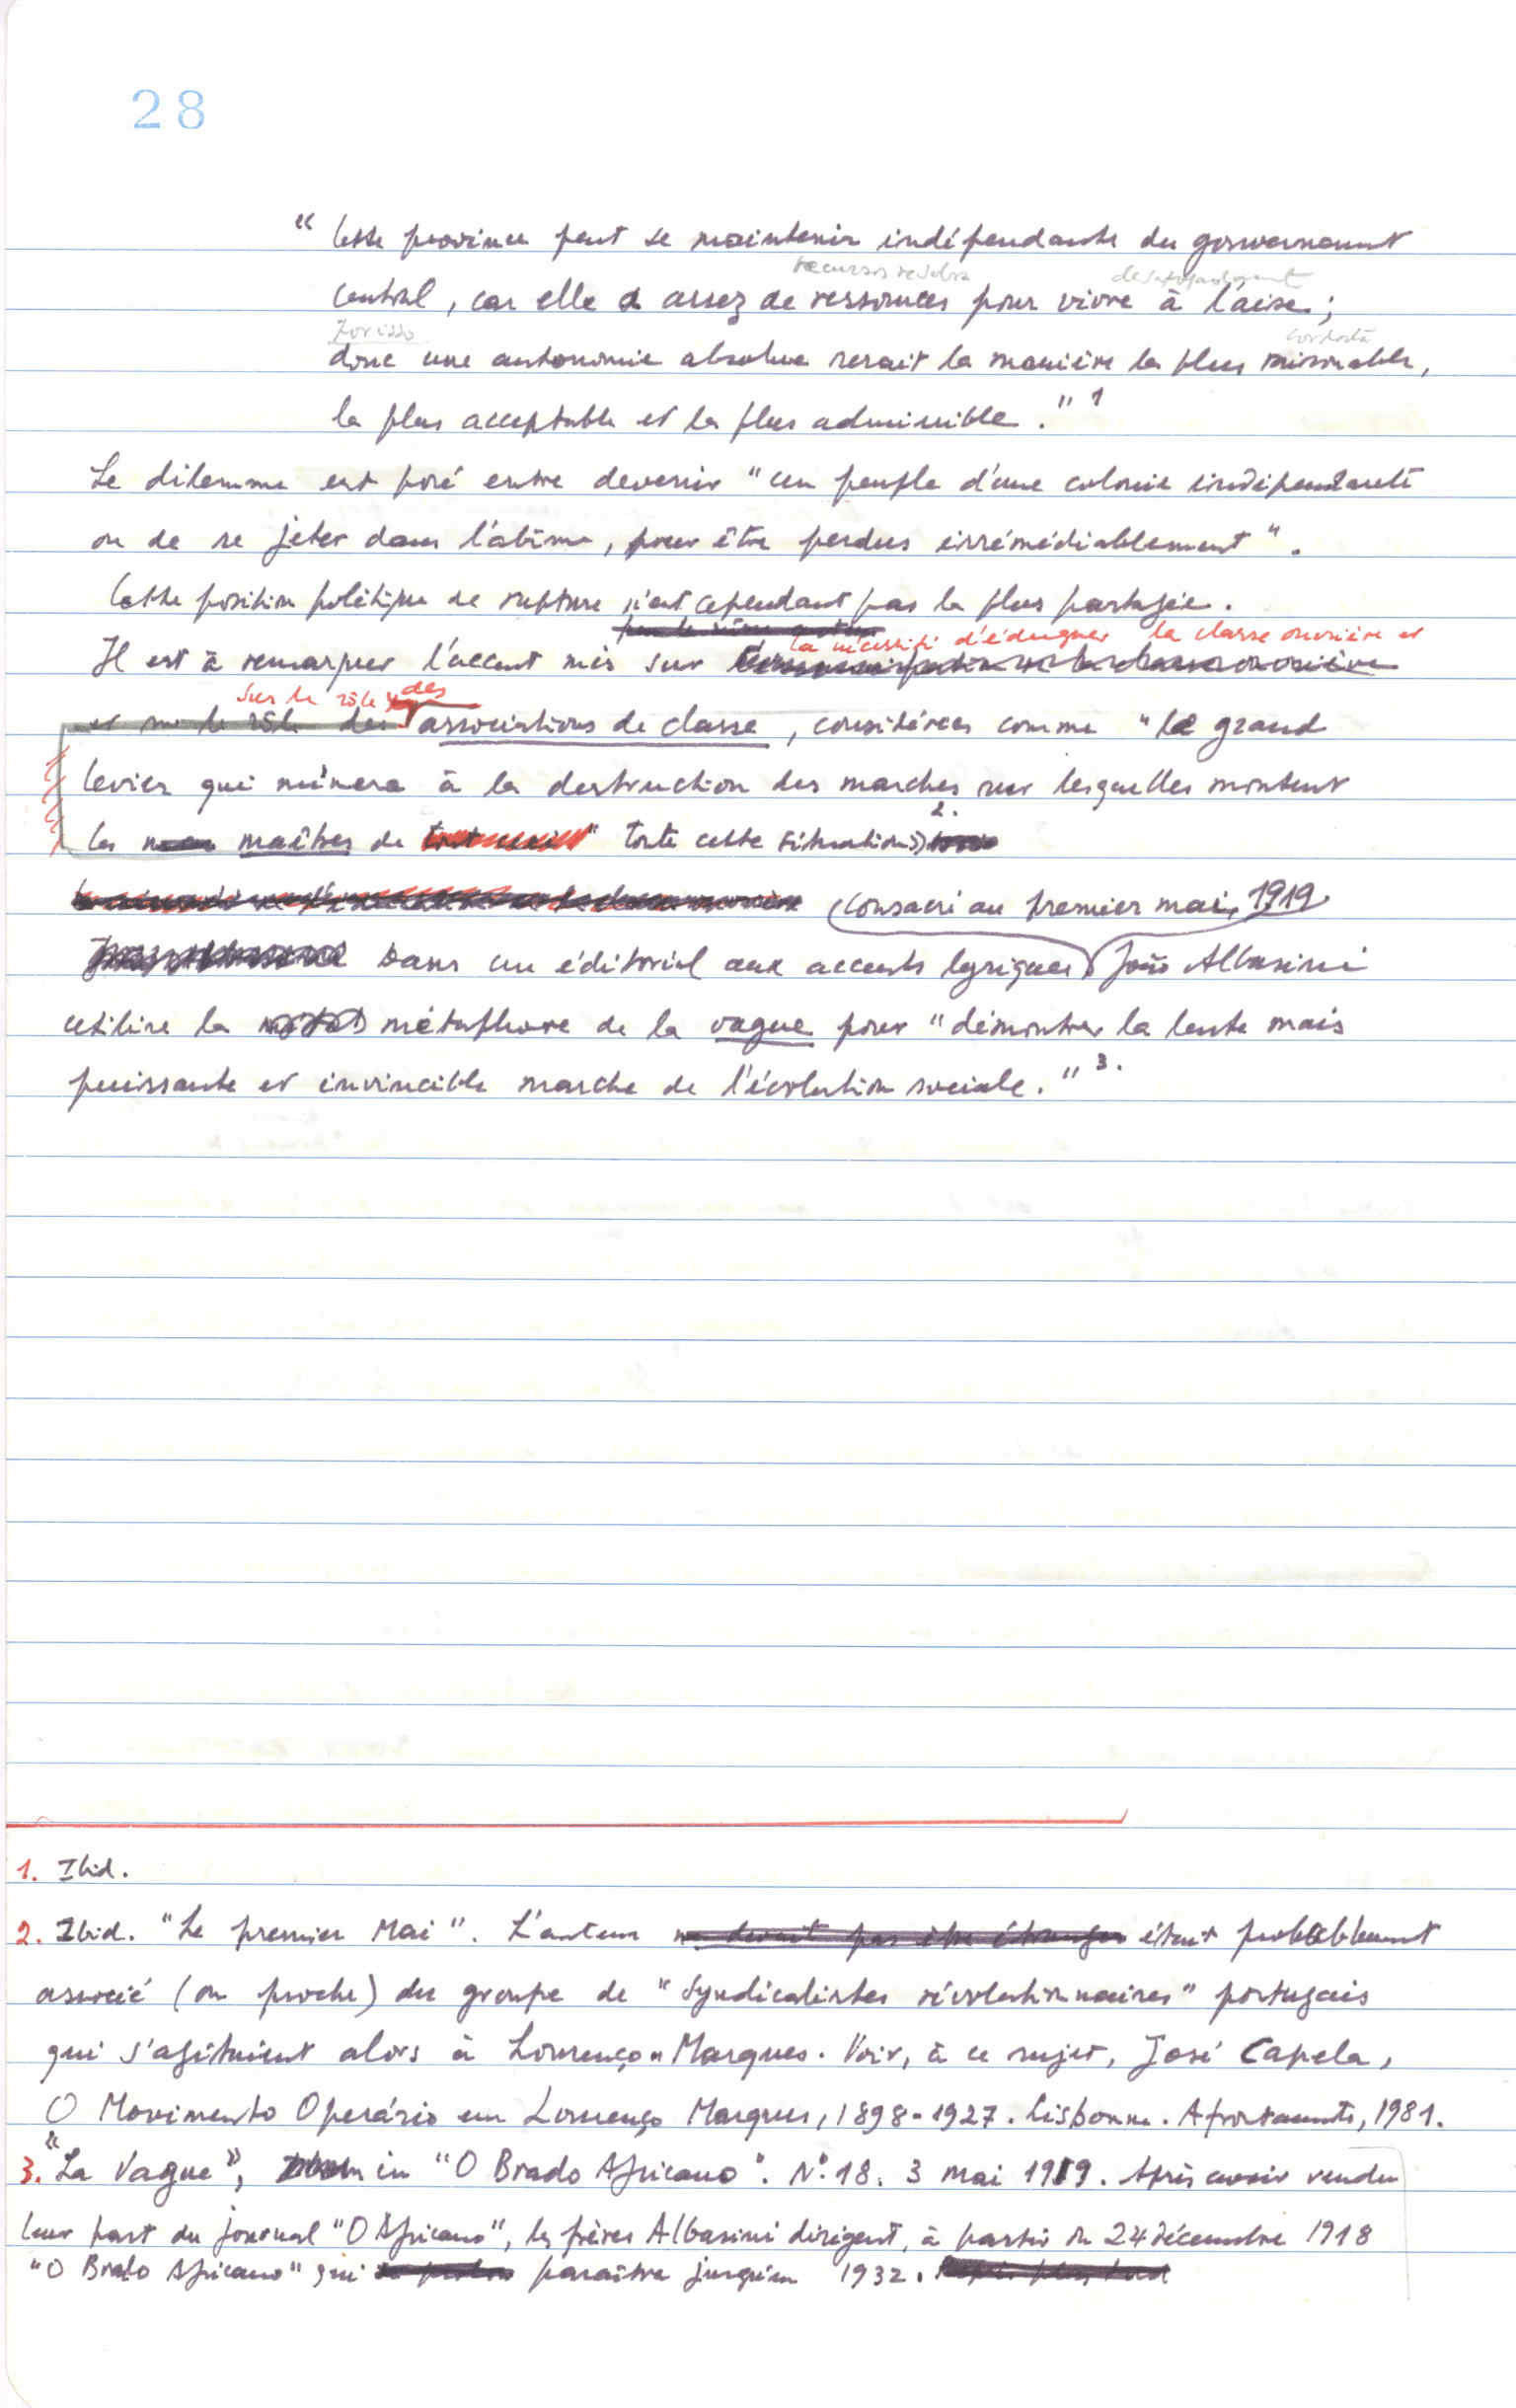 28
" Cette province peut se maintenir indépendante du gouvernement
recursos
central, car elle a assez de ressources pour vivre à l'aise ;
Por isso
donc une autonomie absolue serait la manière la plus raisonnable,
la plus acceptable et la plus admissible. " 1
Le dilemme est posé entre devenir "un peuple d'une colonie indépendante
ou de se jeter dans l'abîme, pour être perdus irrémédiablement".
Cette position politique de rupture n'est cependant pas la plus partagée.
la nécessité d'éduquer la classe ouvrière et
Il est à remarquer l'accent mis sur
sur le rôle des
et sur le rôle des associations de classe, considérées comme "le grand
levier qui mènera à la destruction des marches sur lesquelles montent
les maîtres de tout ceci" toute cette situation» 2.
(consacré au premier mai, 1919
Dans un éditorial aux accents lyriques João Albasini
utilise la métaphore de la vague pour "démontrer la lente mais
puissante et invincible marche de l'évolution sociale." 3.
1. Ibid.
2. Ibid. "Le premier Mai". L'auteur ne devait pas être étranger était probablement
associé (ou proche) du groupe de "Syndicalistes révolutionnaires" portugais
qui s'agitaient alors à Lourenço-Marques. Voir, à ce sujet, José Capela,
O Movimento Operário em Lourenço Marques, 1898-1927. Lisbonne. Afrontamento, 1981.
3. "La Vague", in "O Brado Africano". Nº 18. 3 mai 1919. Après avoir vendu
leur part du journal "O Africano", les frères Albasini dirigent, à partir du 24 décembre 1918
"O Brado Africano" qui paraîtra jusqu'en 1932.